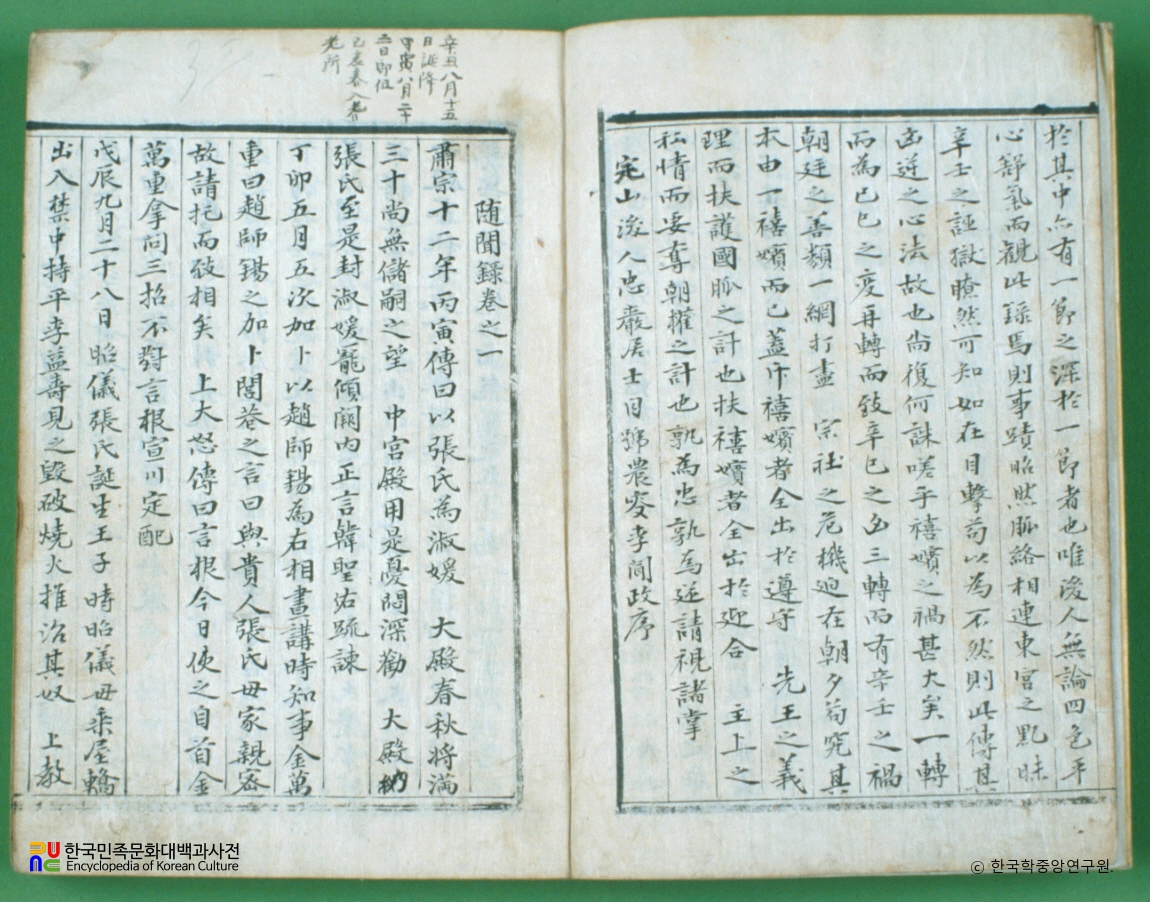 於其中亦有一節之深於一節者也唯後人無論四色平
心舒氣而觀此錄焉則事蹟昭然脈絡相連東宮之點昧
辛壬之誣獄瞭然可知如在目擊苟以為不然則此傳其
凶逆之心法故也尙復何誅嗟乎禧嬪之禍甚大矣一轉
而為己巳之変再轉而致辛巳之凶三轉而有辛壬之禍
朝廷之善類一網打盡 宗社之危機迫在朝夕苟究其
本由一禧嬪而已蓋仵禧嬪者全出於遵守 先王之義
理而扶護國脈之計也扶禧嬪者全出於迎合 主上之
私情而要奪朝權之計也孰為忠孰為逆請視諸掌
完山後人忠嚴居士自號農叜李聞政序
辛丑八月十五
日誕降
甲寅八月二十
三日卽位
己亥春入耆
老所
随聞錄卷之一
肅宗十二年丙寅傳曰以張氏為淑媛 大殿春秋將滿
三十尚無儲嗣之望 中宮殿用是憂悶深勸 大殿納
張氏至是封淑媛寵傾闕內正言韓聖佑疏諫
丁卯五月五次加卜以趙師錫為右相晝講時知事金萬
重曰趙師錫之加卜閭巷之言曰與貴人張氏母家親密
故請托而致相矣 上大怒傳曰言根今日使之自首金
萬重拿問三招不對言根宣川定配
戊辰九月二十八日昭儀張氏誕生王子時昭儀母乘屋轎
出入禁中持平李益壽見之毀破燒火推治其奴 上教
한국민족문화대백과사전
Encyclopedia of Korean Culture
© 한국학중앙연구원.